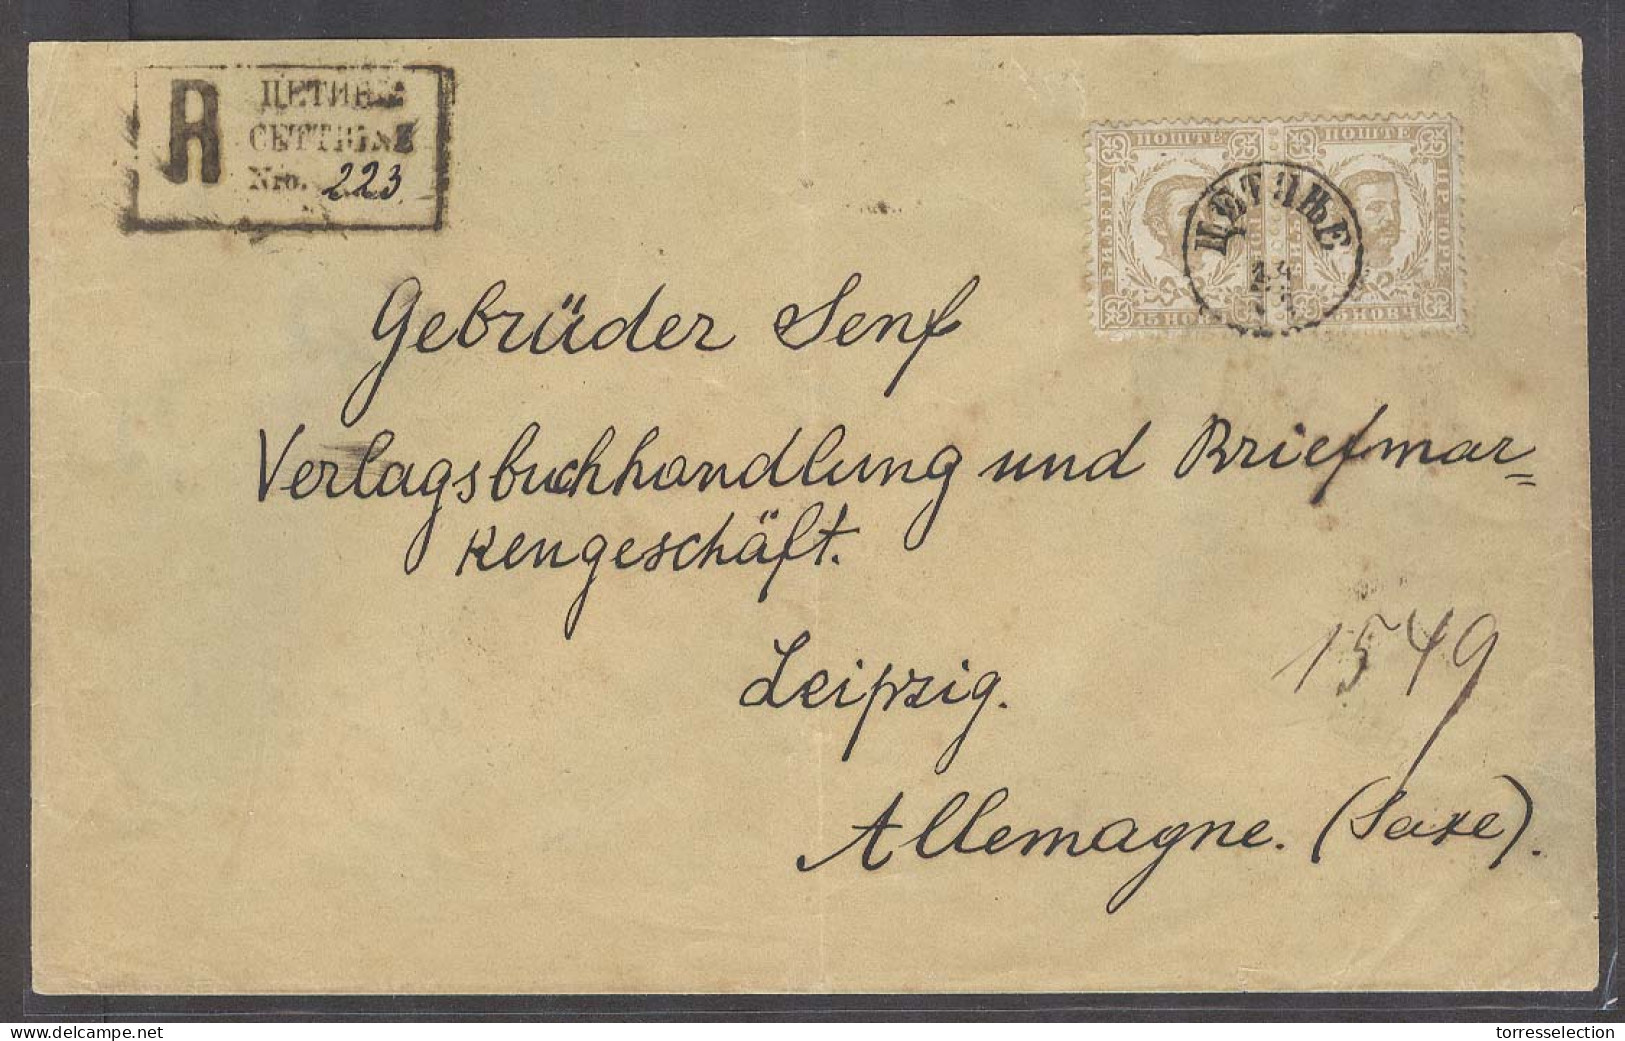 R ЦЕТИЊЕ
CETTIGNE
Nro. 223
ПОШТЕ ПОШТЕ
ЦЕТИЊЕ
15 НОВЧ 15 НОВЧ
Gebrüder Senf
Verlagsbuchhandlung und Briefmar=
kengeschäft.
Leipzig.
1549
Allemagne. (Saxe).
www.delcampe.net
torresselection